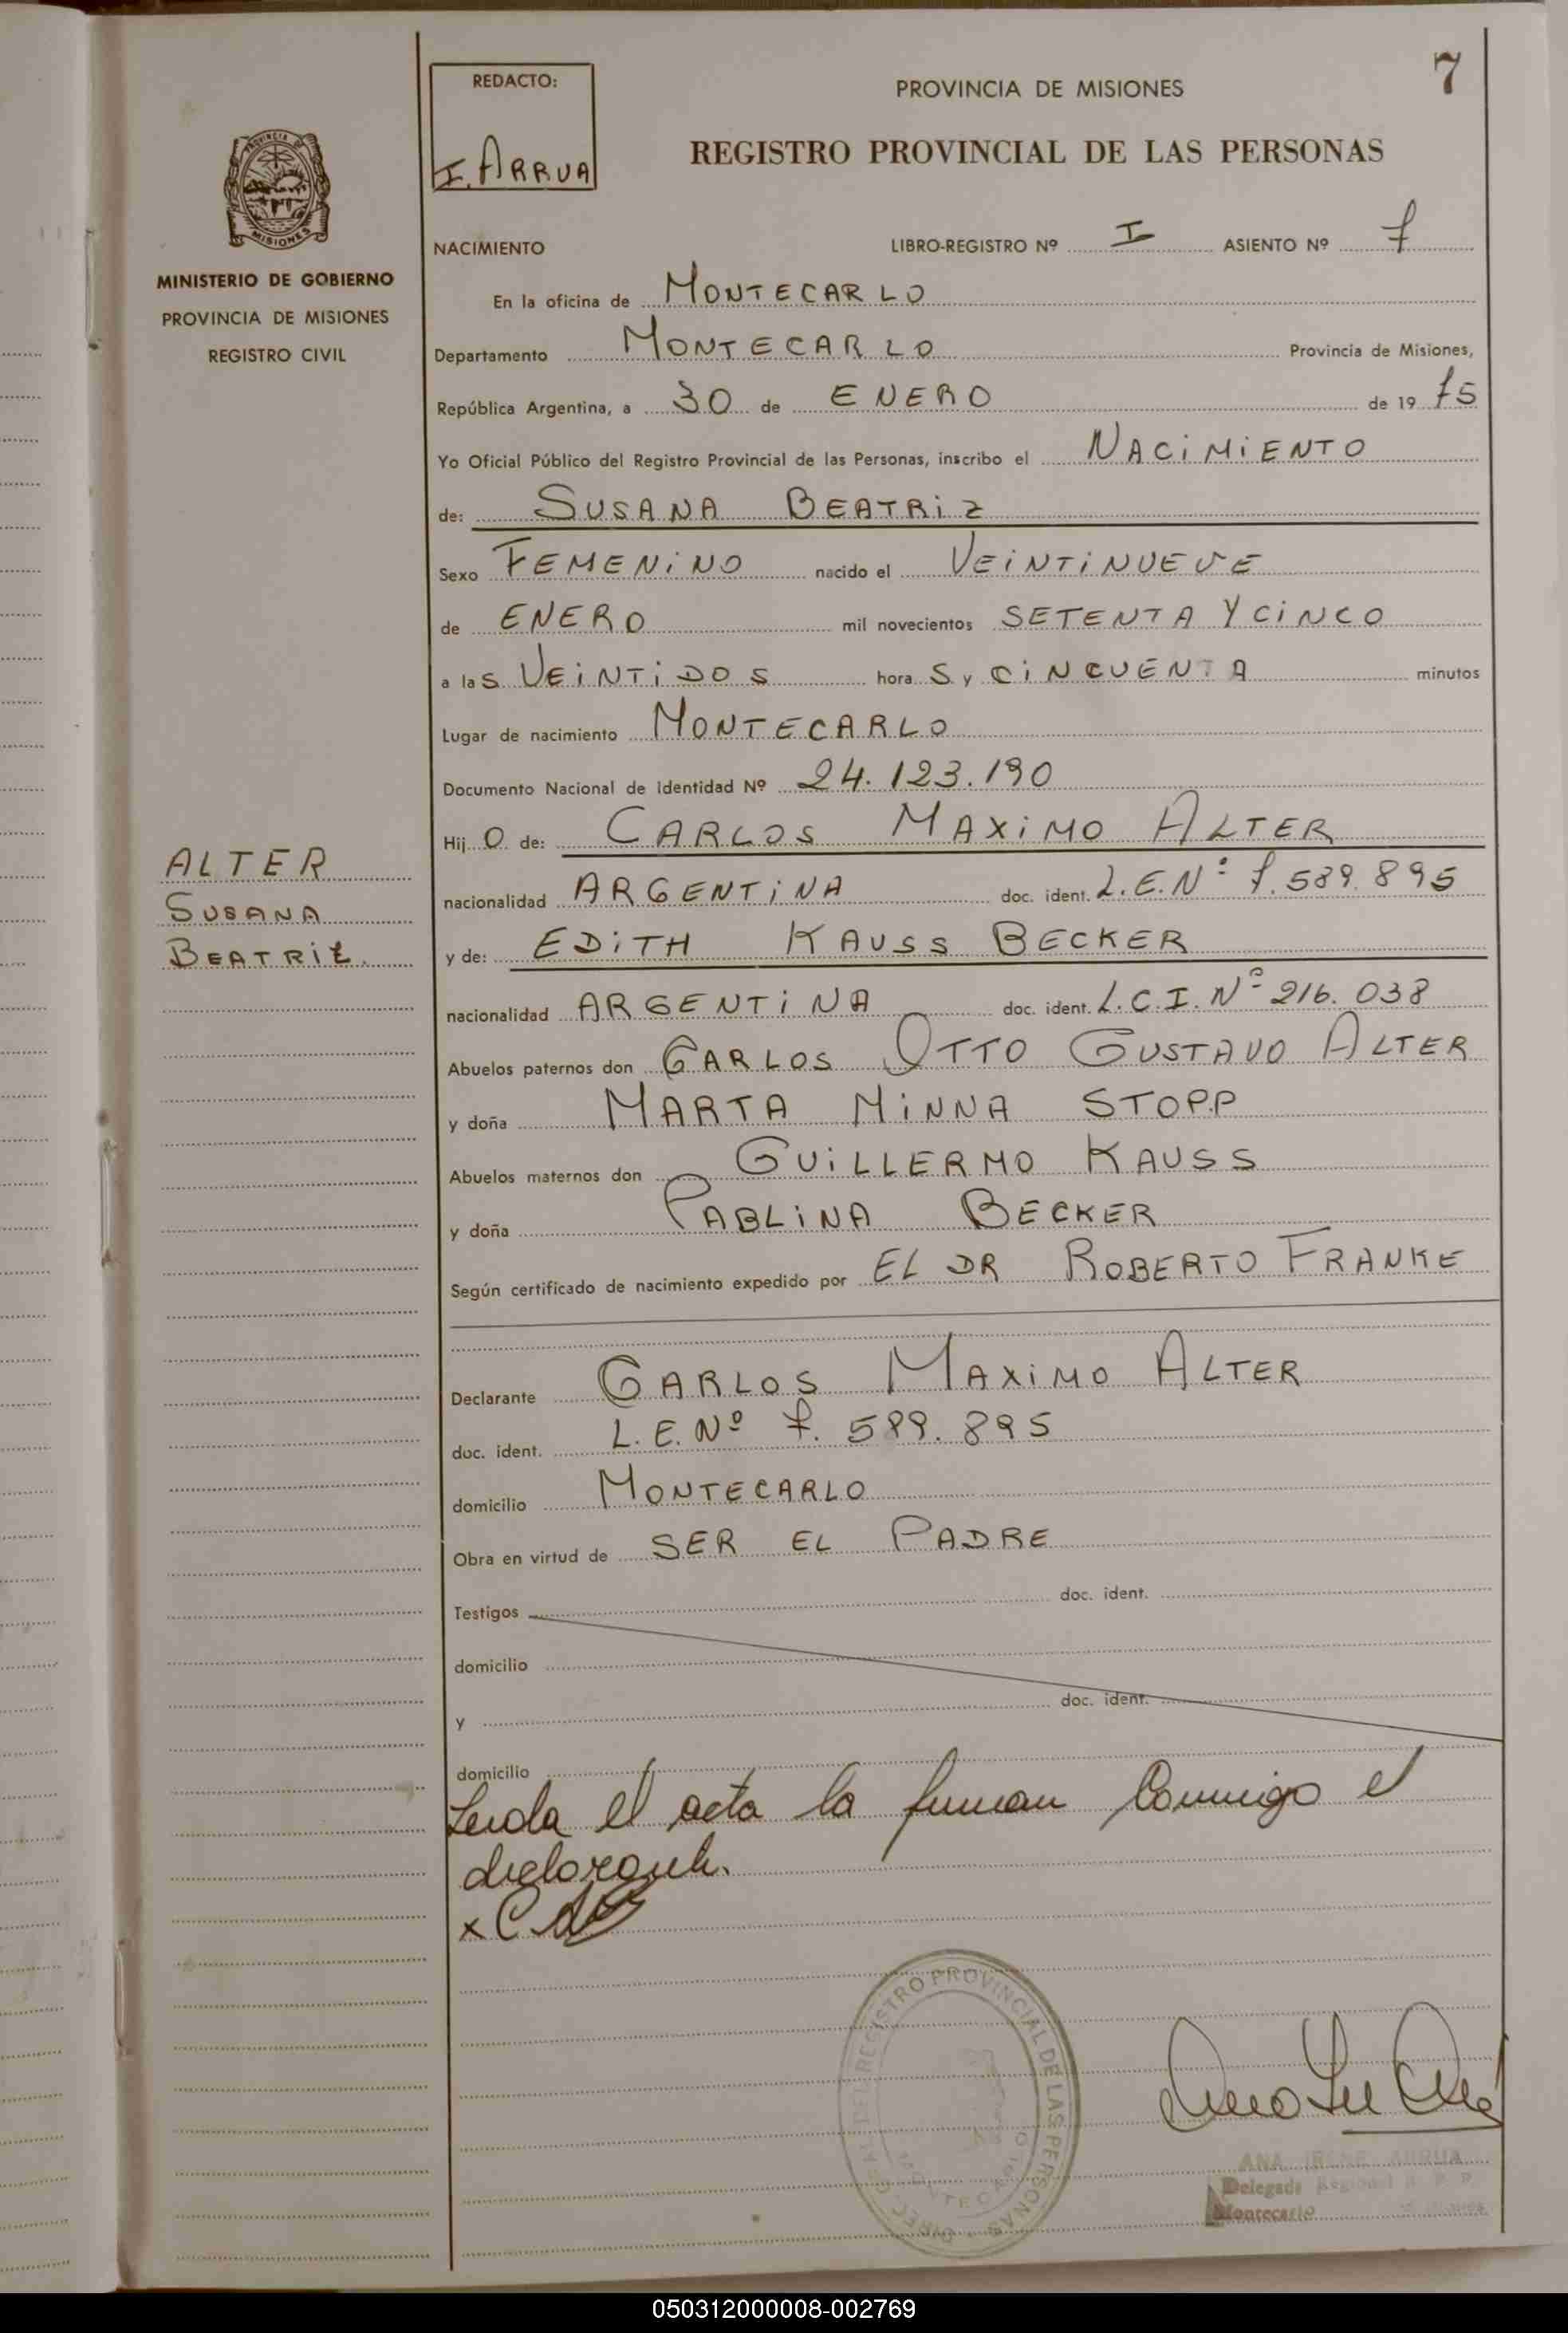 7
REDACTO:
I. ARRUA
PROVINCIA DE MISIONES
REGISTRO PROVINCIAL DE LAS PERSONAS
PROVINCIA DE
MISIONES
MINISTERIO DE GOBIERNO
PROVINCIA DE MISIONES
REGISTRO CIVIL
NACIMIENTO LIBRO-REGISTRO Nº I ASIENTO Nº 7
En la oficina de MONTECARLO
Departamento MONTECARLO Provincia de Misiones,
República Argentina, a 30 de ENERO de 19 75
Yo Oficial Público del Registro Provincial de las Personas, inscribo el NACIMIENTO
de: SUSANA BEATRIZ
Sexo FEMENINO nacido el VEINTINUEVE
de ENERO mil novecientos SETENTA Y CINCO
a las VEINTIDOS horas y CINCUENTA minutos
Lugar de nacimiento MONTECARLO
Documento Nacional de Identidad Nº 24.123.190
Hijo de: CARLOS MAXIMO ALTER
ALTER
SUSANA
BEATRIZ.
nacionalidad ARGENTINA doc. ident. L.E.Nº 7.589.895
y de: EDITH KAUSS BECKER
nacionalidad ARGENTINA doc. ident. L.C.I. Nº 216.038
Abuelos paternos don CARLOS OTTO GUSTAVO ALTER
y doña MARTA MINNA STOPP
Abuelos maternos don GUILLERMO KAUSS
y doña PABLINA BECKER
Según certificado de nacimiento expedido por EL DR ROBERTO FRANKE
Declarante CARLOS MAXIMO ALTER
doc. ident. L.E.Nº 7.589.895
domicilio MONTECARLO
Obra en virtud de SER EL PADRE
Testigos doc. ident.
domicilio
y doc. ident.
domicilio
Leida el acta la firman conmigo el
x
REGISTRO PROVINCIAL DE LAS PERSONAS
MONTECARLO
ANA IRENE ARRUA
Delegada Regional R. P. P.
Montecarlo
050312000008-002769